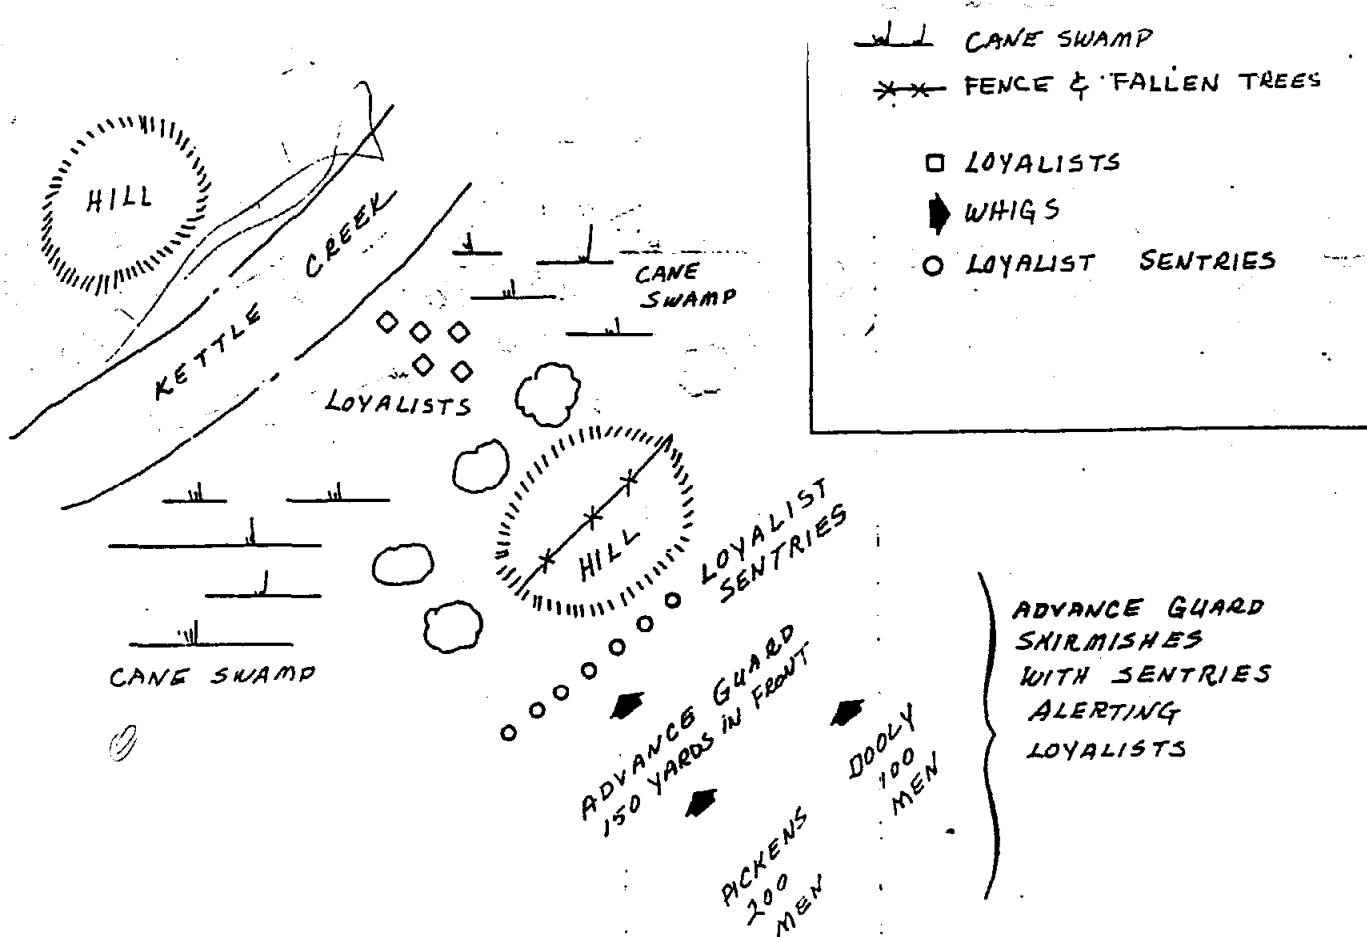 CANE SWAMP
FENCE & FALLEN TREES
LOYALISTS
WHIGS
LOYALIST SENTRIES
HILL
KETTLE CREEK
CANE
SWAMP
LOYALISTS
HILL
LOYALIST
SENTRIES
CANE SWAMP
ADVANCE GUARD
150 YARDS IN FRONT
DOOLY
100
MEN
PICKENS
200
MEN
ADVANCE GUARD
SKIRMISHES
WITH SENTRIES
ALERTING
LOYALISTS